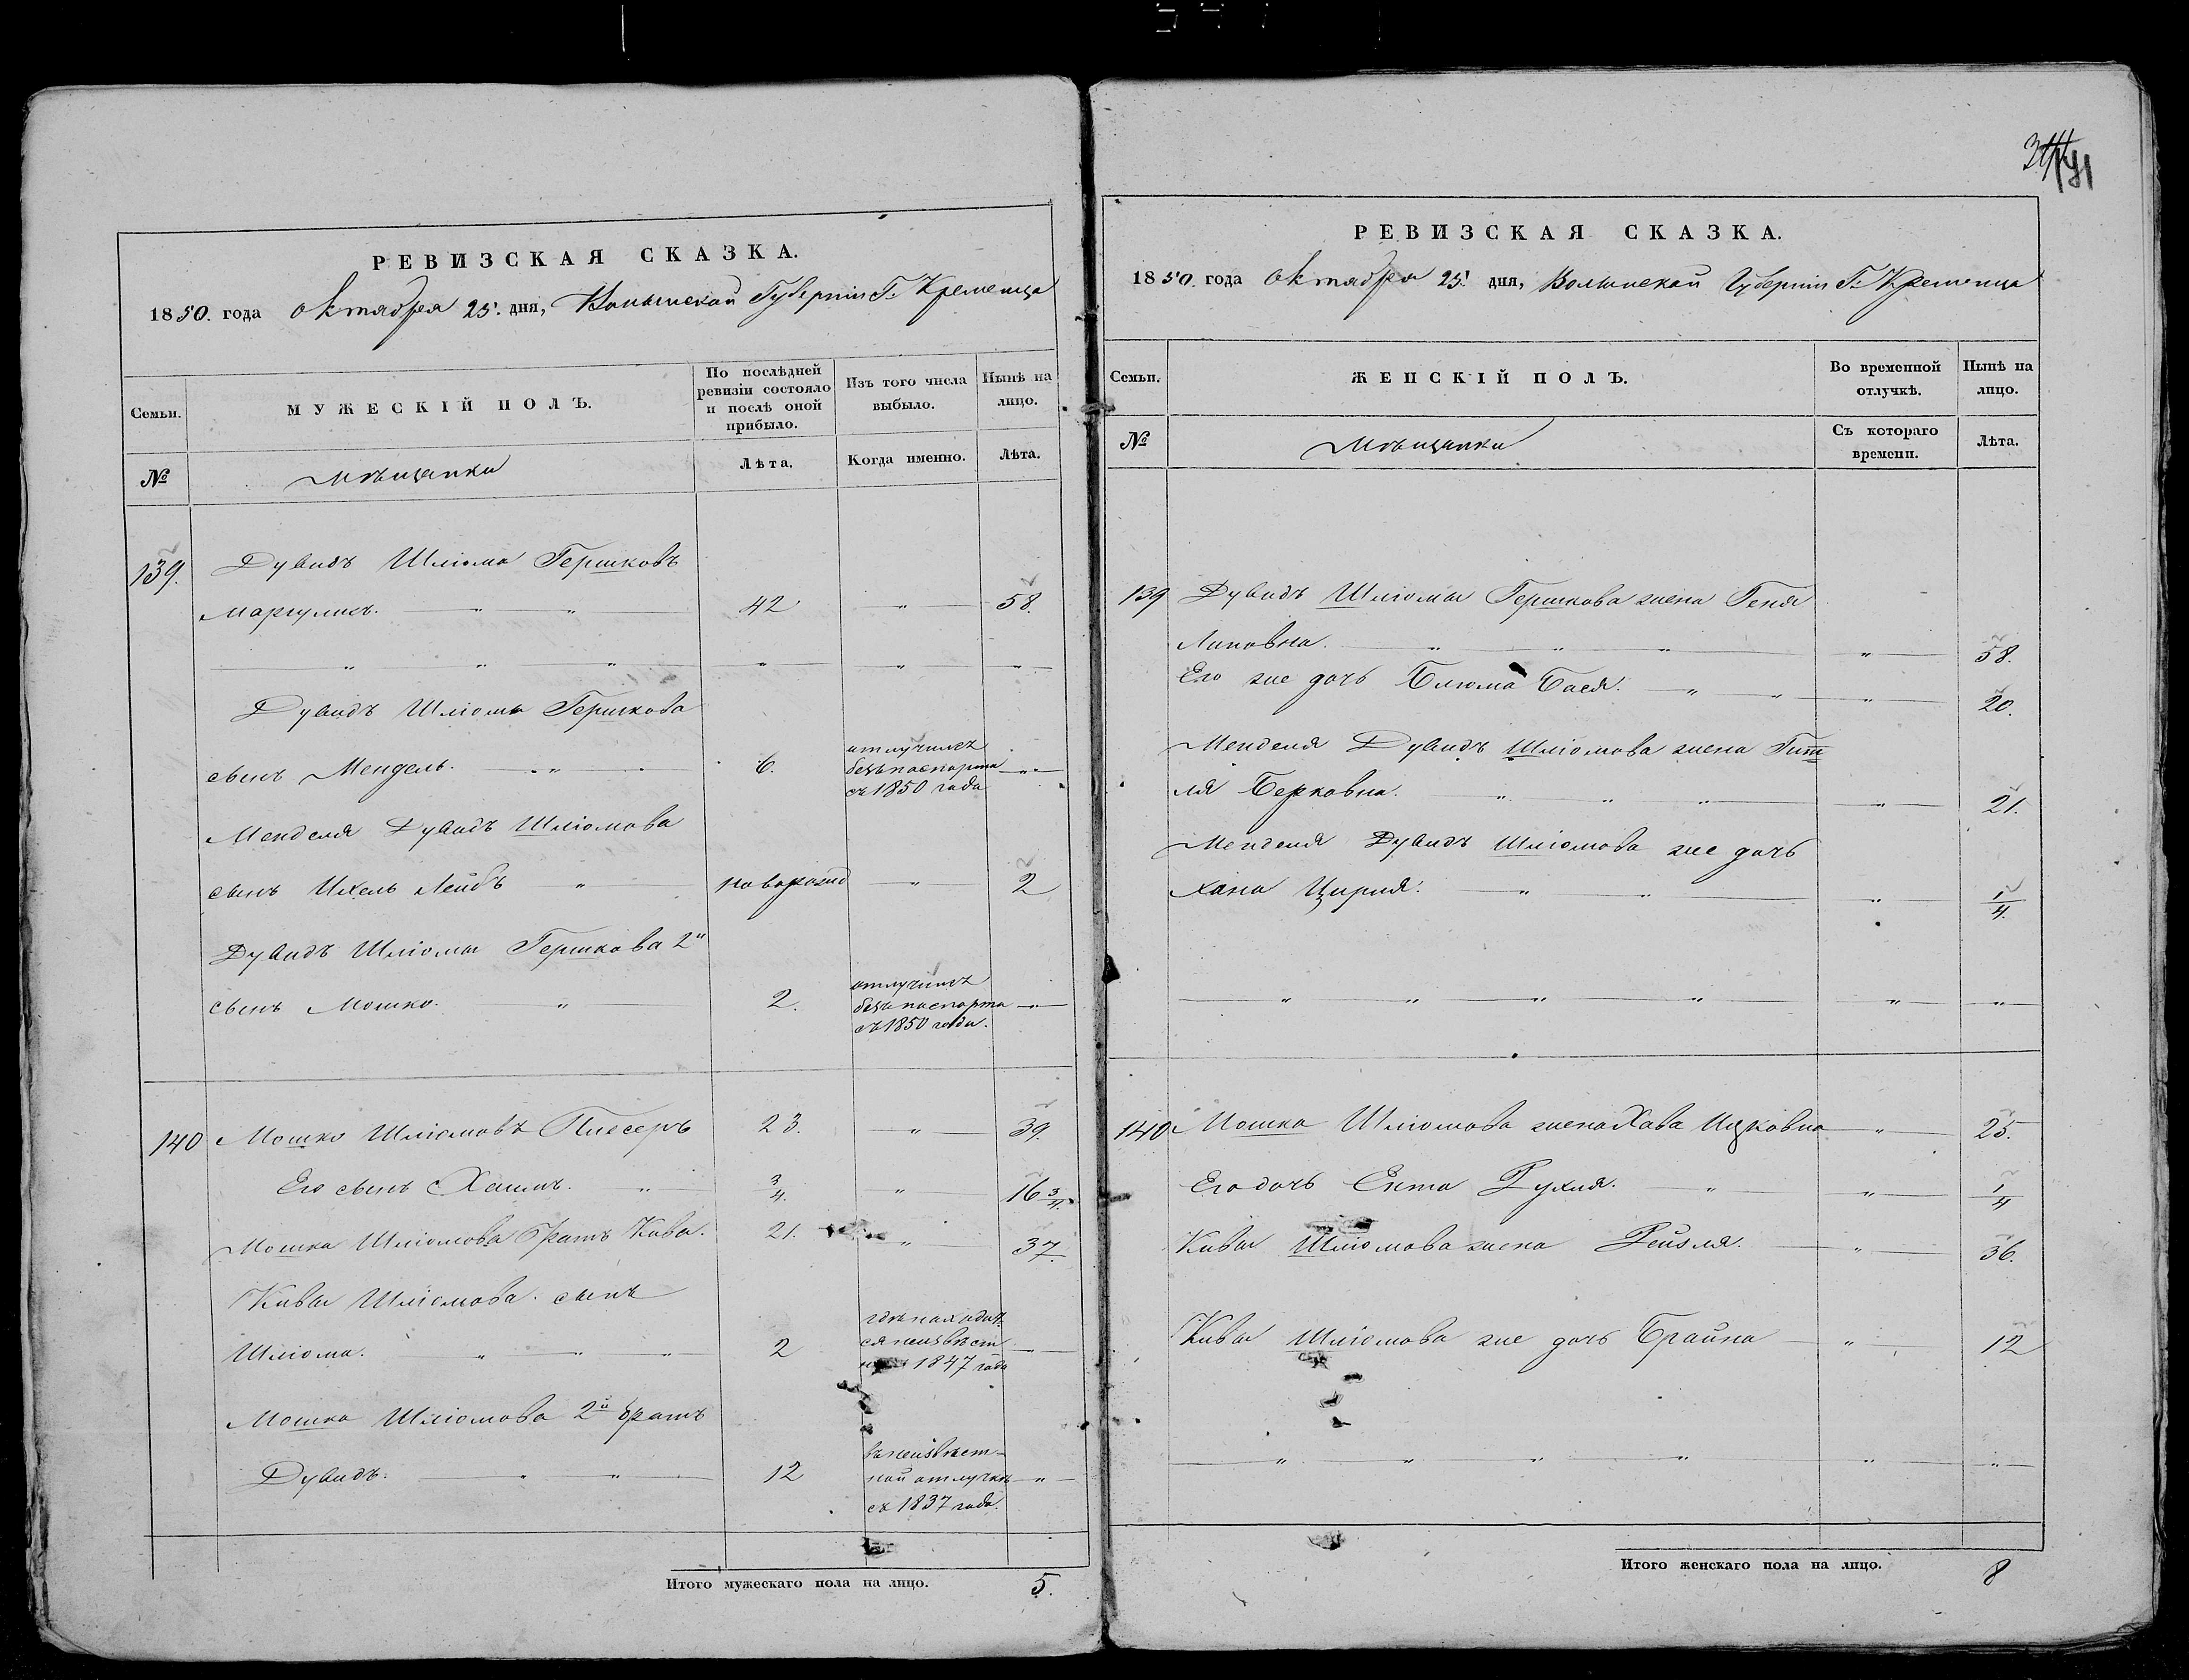 РЕВИЗСКАЯ СКАЗКА.
1850. года октября 25. дня, Волынской Губерніи Г. Кременца
Семьи.
МУЖЕСКІЙ ПОЛЪ.
По послѣдней
ревизіи состояло
и послѣ оной
прибыло.
Изъ того числа
выбыло.
Нынѣ на
лицо.
№
Мѣщанки
Лѣта.
Когда именно.
Лѣта.
139. Дувидъ Шліома Гершковъ
Маргулисъ. 42 " 58.
Дувидъ Шліомы Гершкова
сынъ Мендель. 6. отлучился
безъ паспорта
съ 1850 года
Менделя Дувидъ Шліомова
сынъ Ихель Лейбъ " новорожд " 2
Дувидъ Шліомы Гершкова 2й
сынъ Мошко. " 2. отлучился
безъ паспорта
съ 1850 года.
140 Мошко Шліомовъ 23. " 39.
Его сынъ Хаимъ. " 3/4. " 16 3/4.
Мошка Шліомова братъ Кива. 21. " 37.
Кивы Шліомова сынъ
Шліома. " " " 2 гдѣ находит
ся неизвѣст
1847 года
Мошка Шліомова 2й братъ
Дувидъ. " " 12 въ неизвѣст-
ной отлучкѣ "
съ 1837 года.
Итого мужескаго пола на лицо. 5.
РЕВИЗСКАЯ СКАЗКА.
1850. года октября 25. дня, Волынской Губерніи Г. Кременца
Семьи.
ЖЕНСКІЙ ПОЛЪ.
Во временной
отлучкѣ.
Нынѣ на
лицо.
№
Мѣщанки
Съ котораго
времени.
Лѣта.
139 Дувидъ Шліомы Гершкова жена Геня
Липовна. " " " " 58.
Его же дочь Блюма Бася. " " " 20.
Менделя Дувидъ Шліомова жена Гит
ля Берковна. " " " " 21.
Менделя Дувидъ Шліомова же дочь
Хана Цирля. " " " 1/4.
140 Мошка Шліомова жена Хава Ицковна " 25.
Его дочь Ента Рухля. " " 1/4
Кивы Шліомова жена Рейзля. " 36.
Кивы Шліомова же дочь Брайна " 12
Итого женскаго пола на лицо. 8